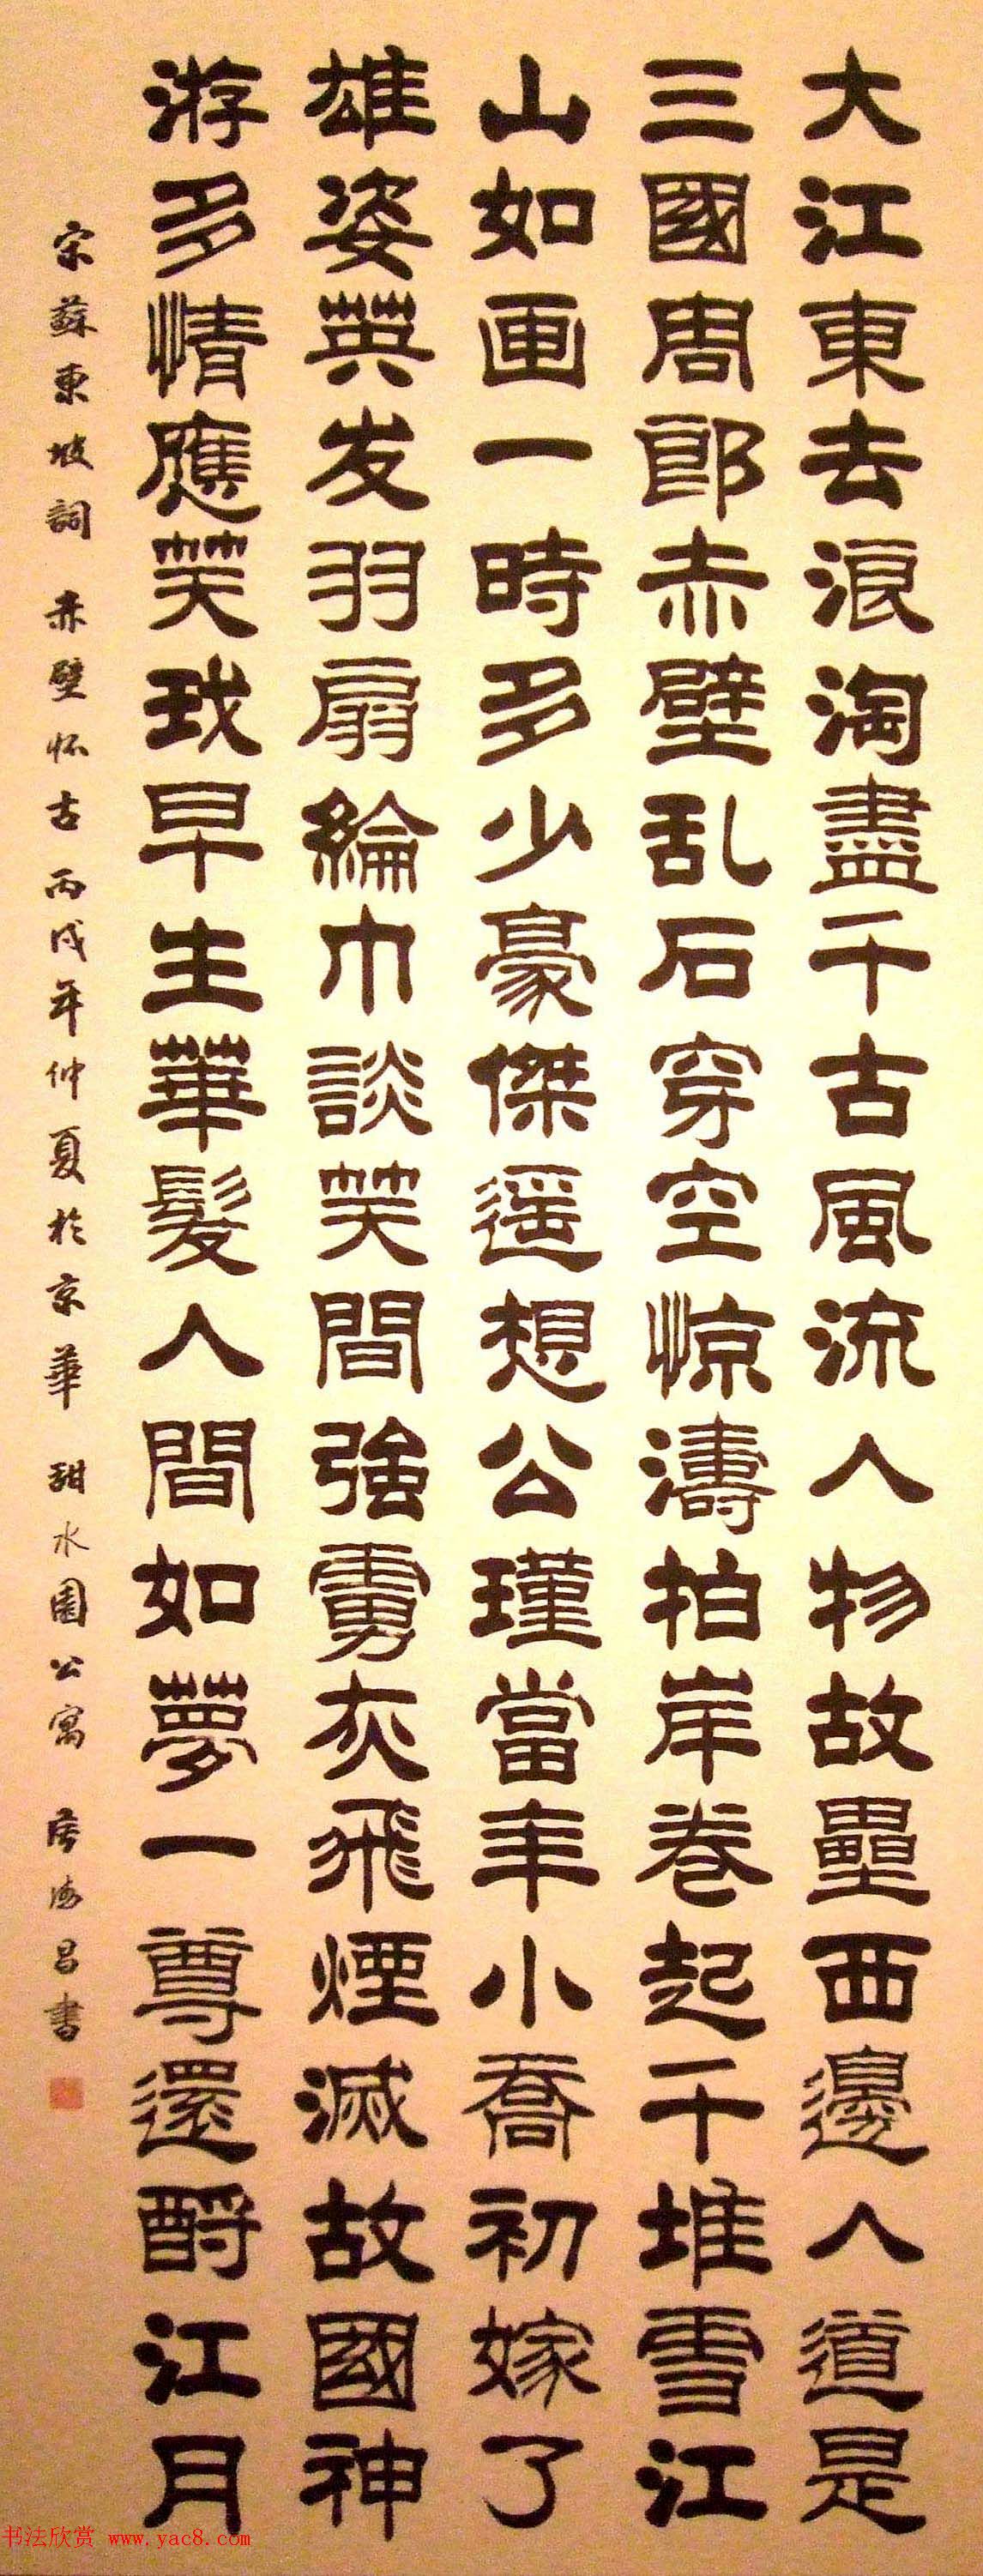 大江東去浪淘盡千古風流人物故壘西邊人道是
三國周郎赤壁乱石穿空惊濤拍岸卷起千堆雪江
山如画一時多少豪傑遥想公瑾當年小喬初嫁了
雄姿英发羽扇綸巾談笑間強虜灰飛煙滅故國神
游多情應笑我早生華髮人間如夢一尊還酹江月
宋蘇東坡詞 赤壁怀古丙戌年仲夏於京華 甜水園公寓 海昌書
书法欣赏 www.yac8.com